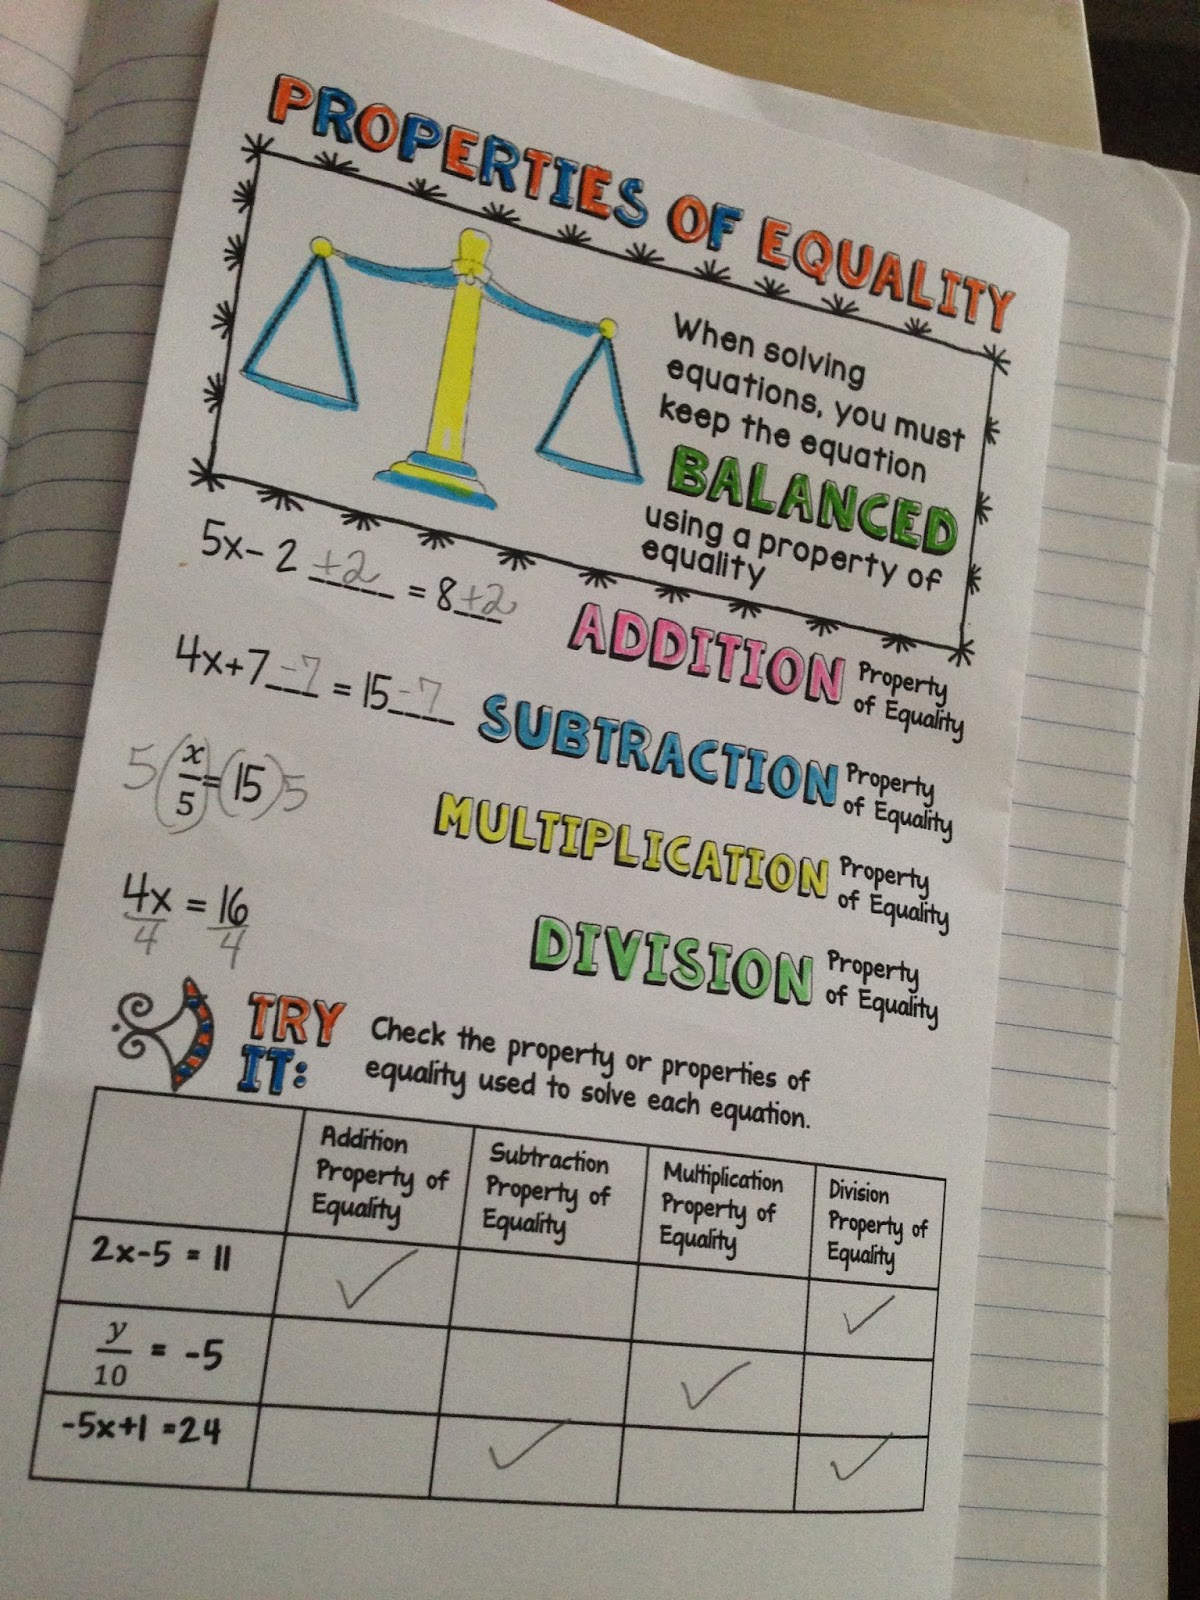 PROPERTIES OF EQUALITY
When solving
equations, you must
keep the equation
BALANCED
using a property of
equality
5x- 2 +2 = 8 +2
ADDITION Property
of Equality
4x+7 -7 = 15 -7
SUBTRACTION Property
of Equality
5(x/5)=(15)5
MULTIPLICATION Property
of Equality
4x/4 = 16/4
DIVISION Property
of Equality
TRY
IT:
Check the property or properties of
equality used to solve each equation.
Addition
Property of
Equality
Subtraction
Property of
Equality
Multiplication
Property of
Equality
Division
Property of
Equality
2x-5 = 11 ✓ ✓
y/10 = -5 ✓
-5x+1 =24 ✓ ✓